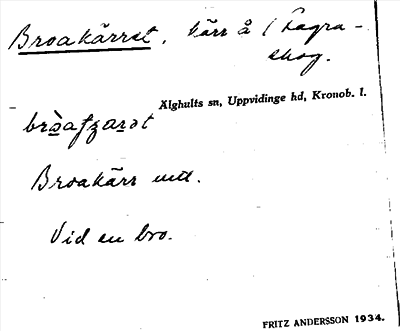 Broakärret, kärr å Hagra-
skog.
Älghults sn, Uppvidinge hd, Kronob. l.
Broakärr utt.
Vid en bro.
FRITZ ANDERSSON 1934.